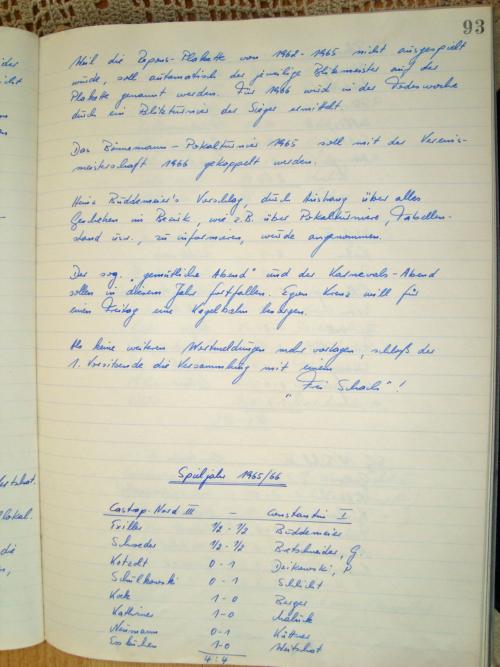 93
Weil die Repons-Plakette von 1962-1965 nicht ausgespielt
wurde, soll automatisch der jeweilige Blitzmeister auf der
Plakette genannt werden. Für 1966 wird in der
durch ein Blitzturnier der Sieger ermittelt.
Das Bönnemann-Pokalturnier 1965 soll mit der Vereins-
meisterschaft 1966 gekoppelt werden.
Heinz Büddemeier's Vorschlag, durch Aushang über alles
Geschehen im Bezirk, wie z.B. über Pokalturniere, Tabellen-
stand usw., zu informieren, wurde angenommen.
Der sog. "gemütliche Abend" und der Karnevals-Abend
sollen in diesem Jahr fortfallen. Egon Kreuz will für
einen Freitag eine Kegelbahn besorgen.
Als keine weiteren Wortmeldungen mehr vorlagen, schloß der
1. Vorsitzende die Versammlung mit einem
"Frei Schach"!
Spieljahr 1965/66
Castrop-Nord III - Constantin I
Exiller 1/2-1/2 Büddemeier
Schroeder 1/2-1/2 Bretschneider, G.
0-1 P.
Schulkowski 0-1 Schlicht
Kock 1-0 Berger
1-0
Neumann 0-1 Küttner
1-0
4:4